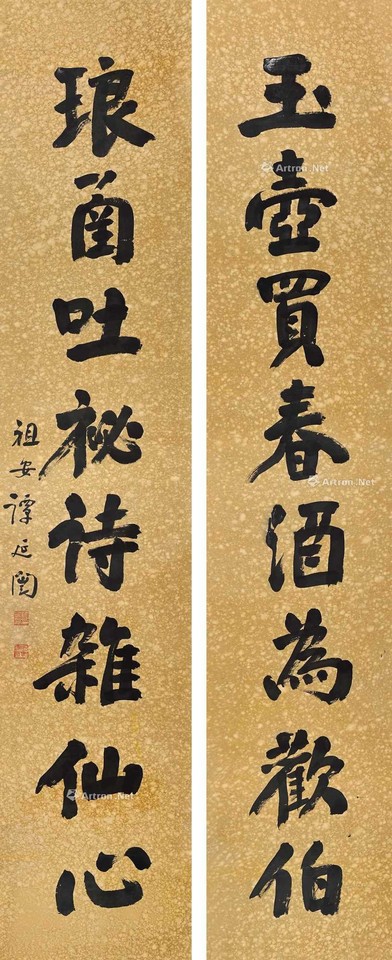 玉壺買春酒為歡伯
琅函吐祕詩雜仙心
祖安譚延闓
Artron.Net
Artron.Net
Artron.Net
Artron.Net